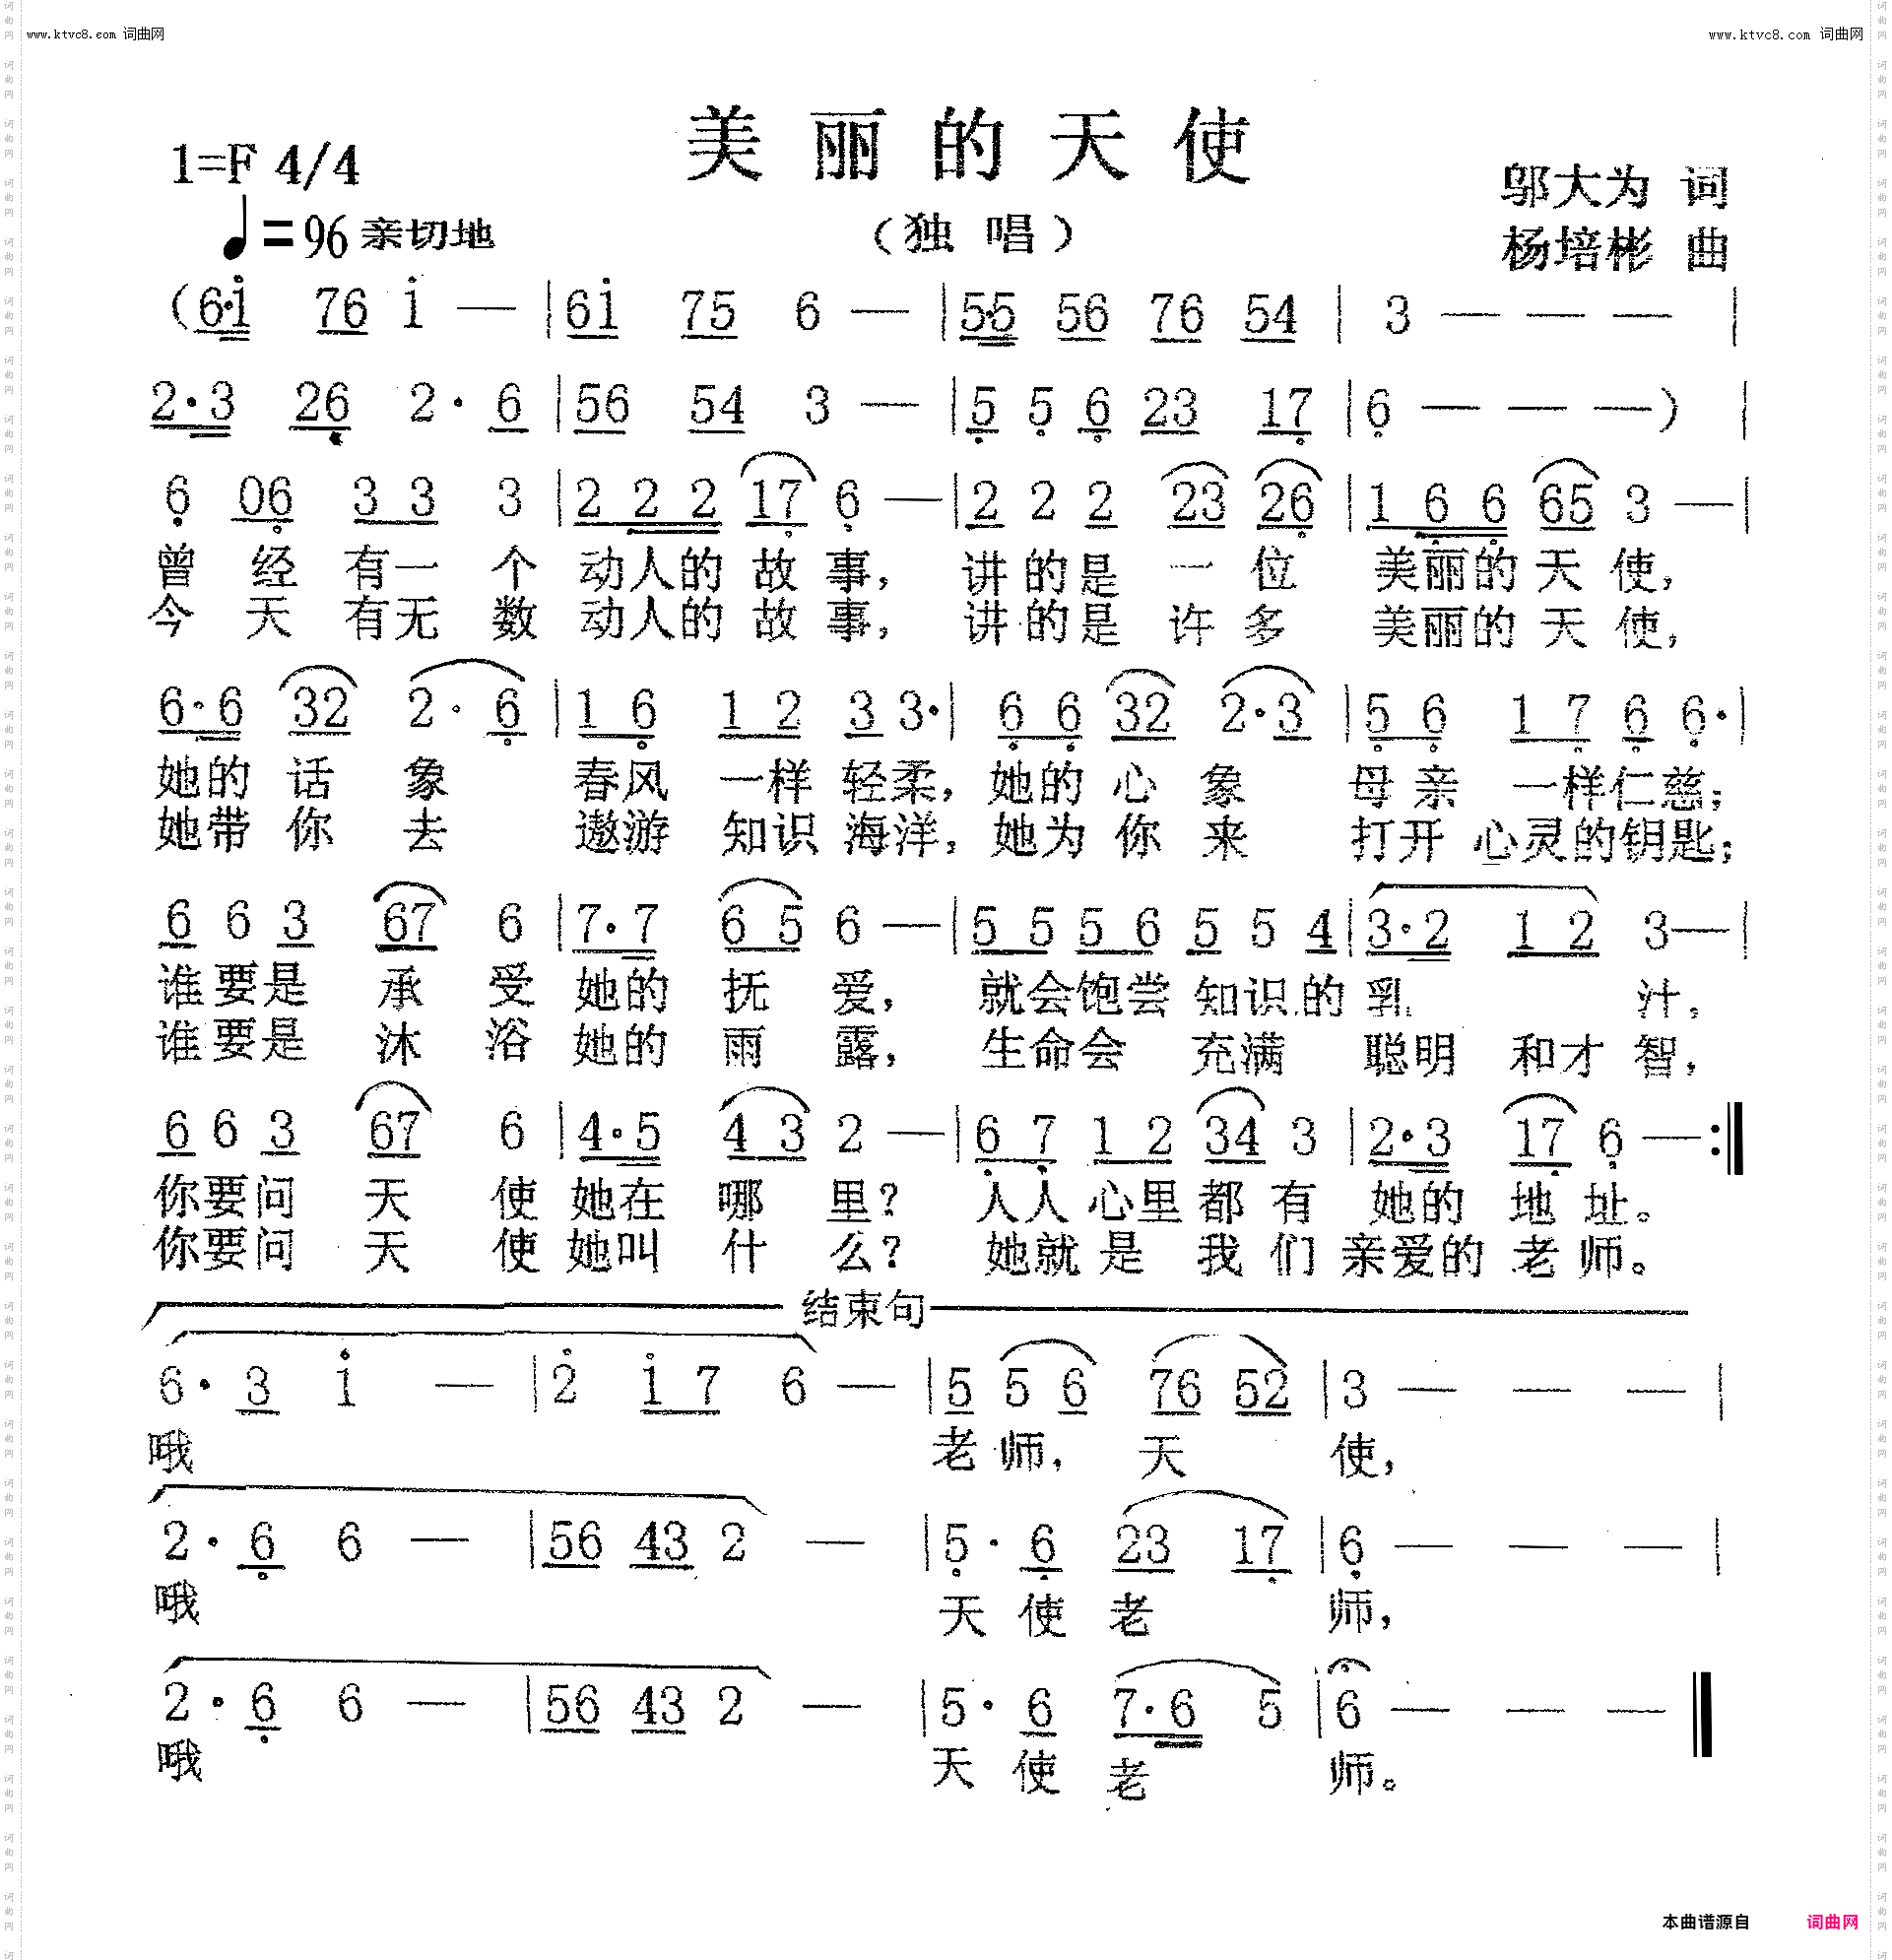 www.ktvc8.com 词曲网
www.ktvc8.com 词曲网
美丽的天使
1=F 4/4
邬大为 词
♩=96 亲切地
（独唱）
杨培彬 曲
(6·i 76 i — | 6i 75 6 — | 5·5 56 76 54 | 3 — — — |
2·3 26 2· 6 | 56 54 3 — | 5 5 6 23 17 | 6 — — —) |
6 06 3 3 3 | 2 2 2 17 6 — | 2 2 2 23 26 | 1 6 6 65 3 — |
曾经有一个 动人的故事, 讲的是一位 美丽的天使,
今天有无数 动人的故事, 讲的是许多 美丽的天使,
6·6 32 2· 6 | 1 6 1 2 3 3· | 6 6 32 2·3 | 5 6 1 7 6 6· |
她的话象 春风一样轻柔, 她的心象 母亲一样仁慈;
她带你去 遨游知识海洋, 她为你来 打开心灵的钥匙;
6 6 3 67 6 | 7·7 6 5 6 — | 5 5 5 6 5 5 4 | 3·2 1 2 3 — |
谁要是承受她的抚爱, 就会饱尝知识的乳汁,
谁要是沐浴她的雨露, 生命会充满聪明和才智,
6 6 3 67 6 | 4·5 4 3 2 — | 6 7 1 2 34 3 | 2·3 17 6 — :‖
你要问天使她在哪里? 人人心里都有她的地址。
你要问天使她叫什么? 她就是我们亲爱的老师。
结束句
6· 3 i — | 2 i 7 6 — | 5 5 6 76 52 | 3 — — — |
哦 老师, 天使,
2· 6 6 — | 56 43 2 — | 5· 6 23 17 | 6 — — — |
哦 天使老师,
2· 6 6 — | 56 43 2 — | 5· 6 7·6 5 | 6 — — — ‖
哦 天使老师。
本曲谱源自 词曲网